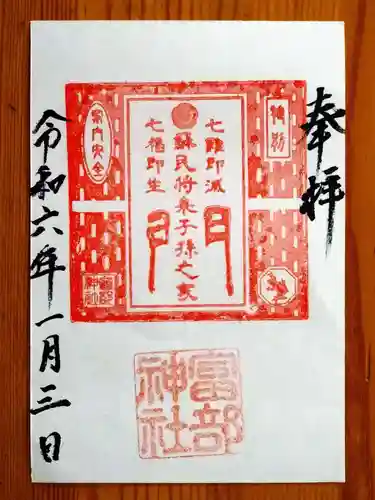 奉拝
特別
七難即滅
蘇民将来子孫之家
門
七福即生
家内安全
富部神社
富部神社
令和六年一月三日